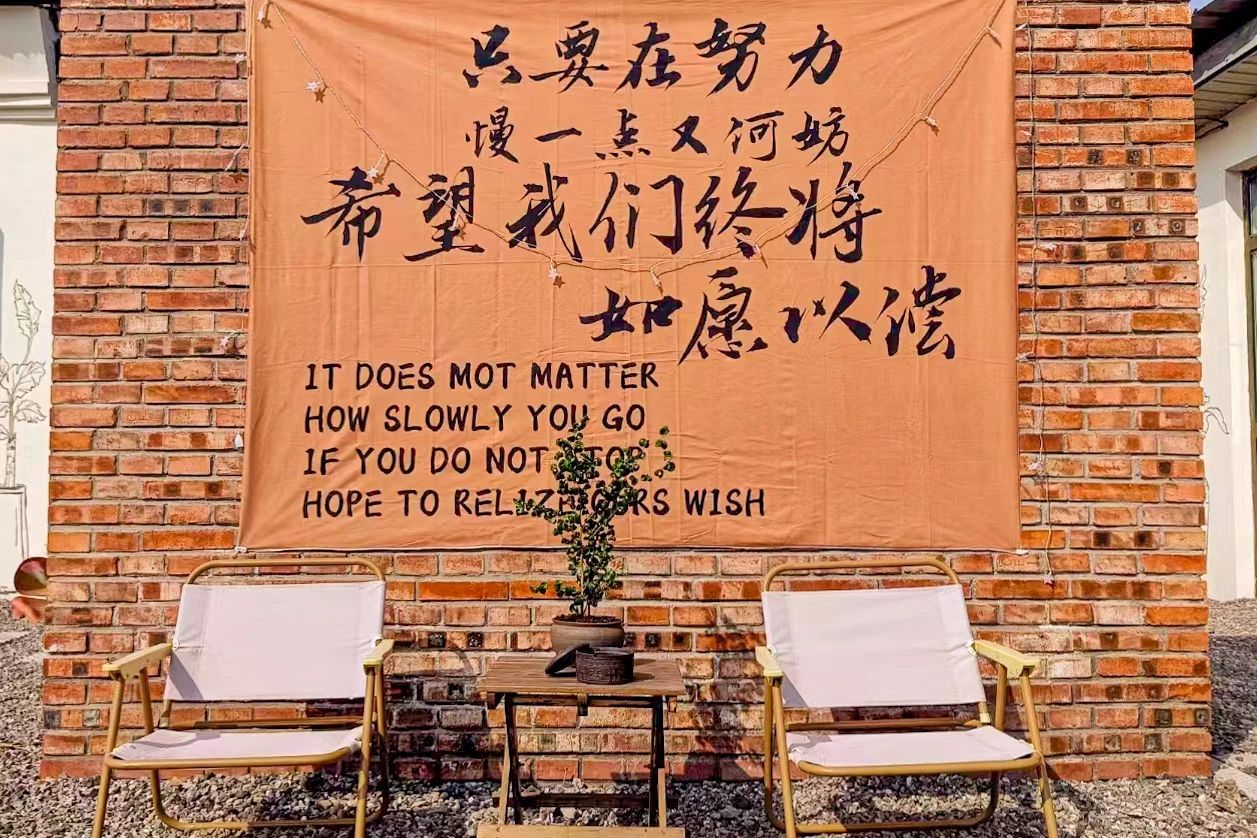 只要在努力
慢一点又何妨
希望我们终将
如愿以偿
IT DOES MOT MATTER
HOW SLOWLY YOU GO
IF YOU DO NOT
HOPE TO WISH